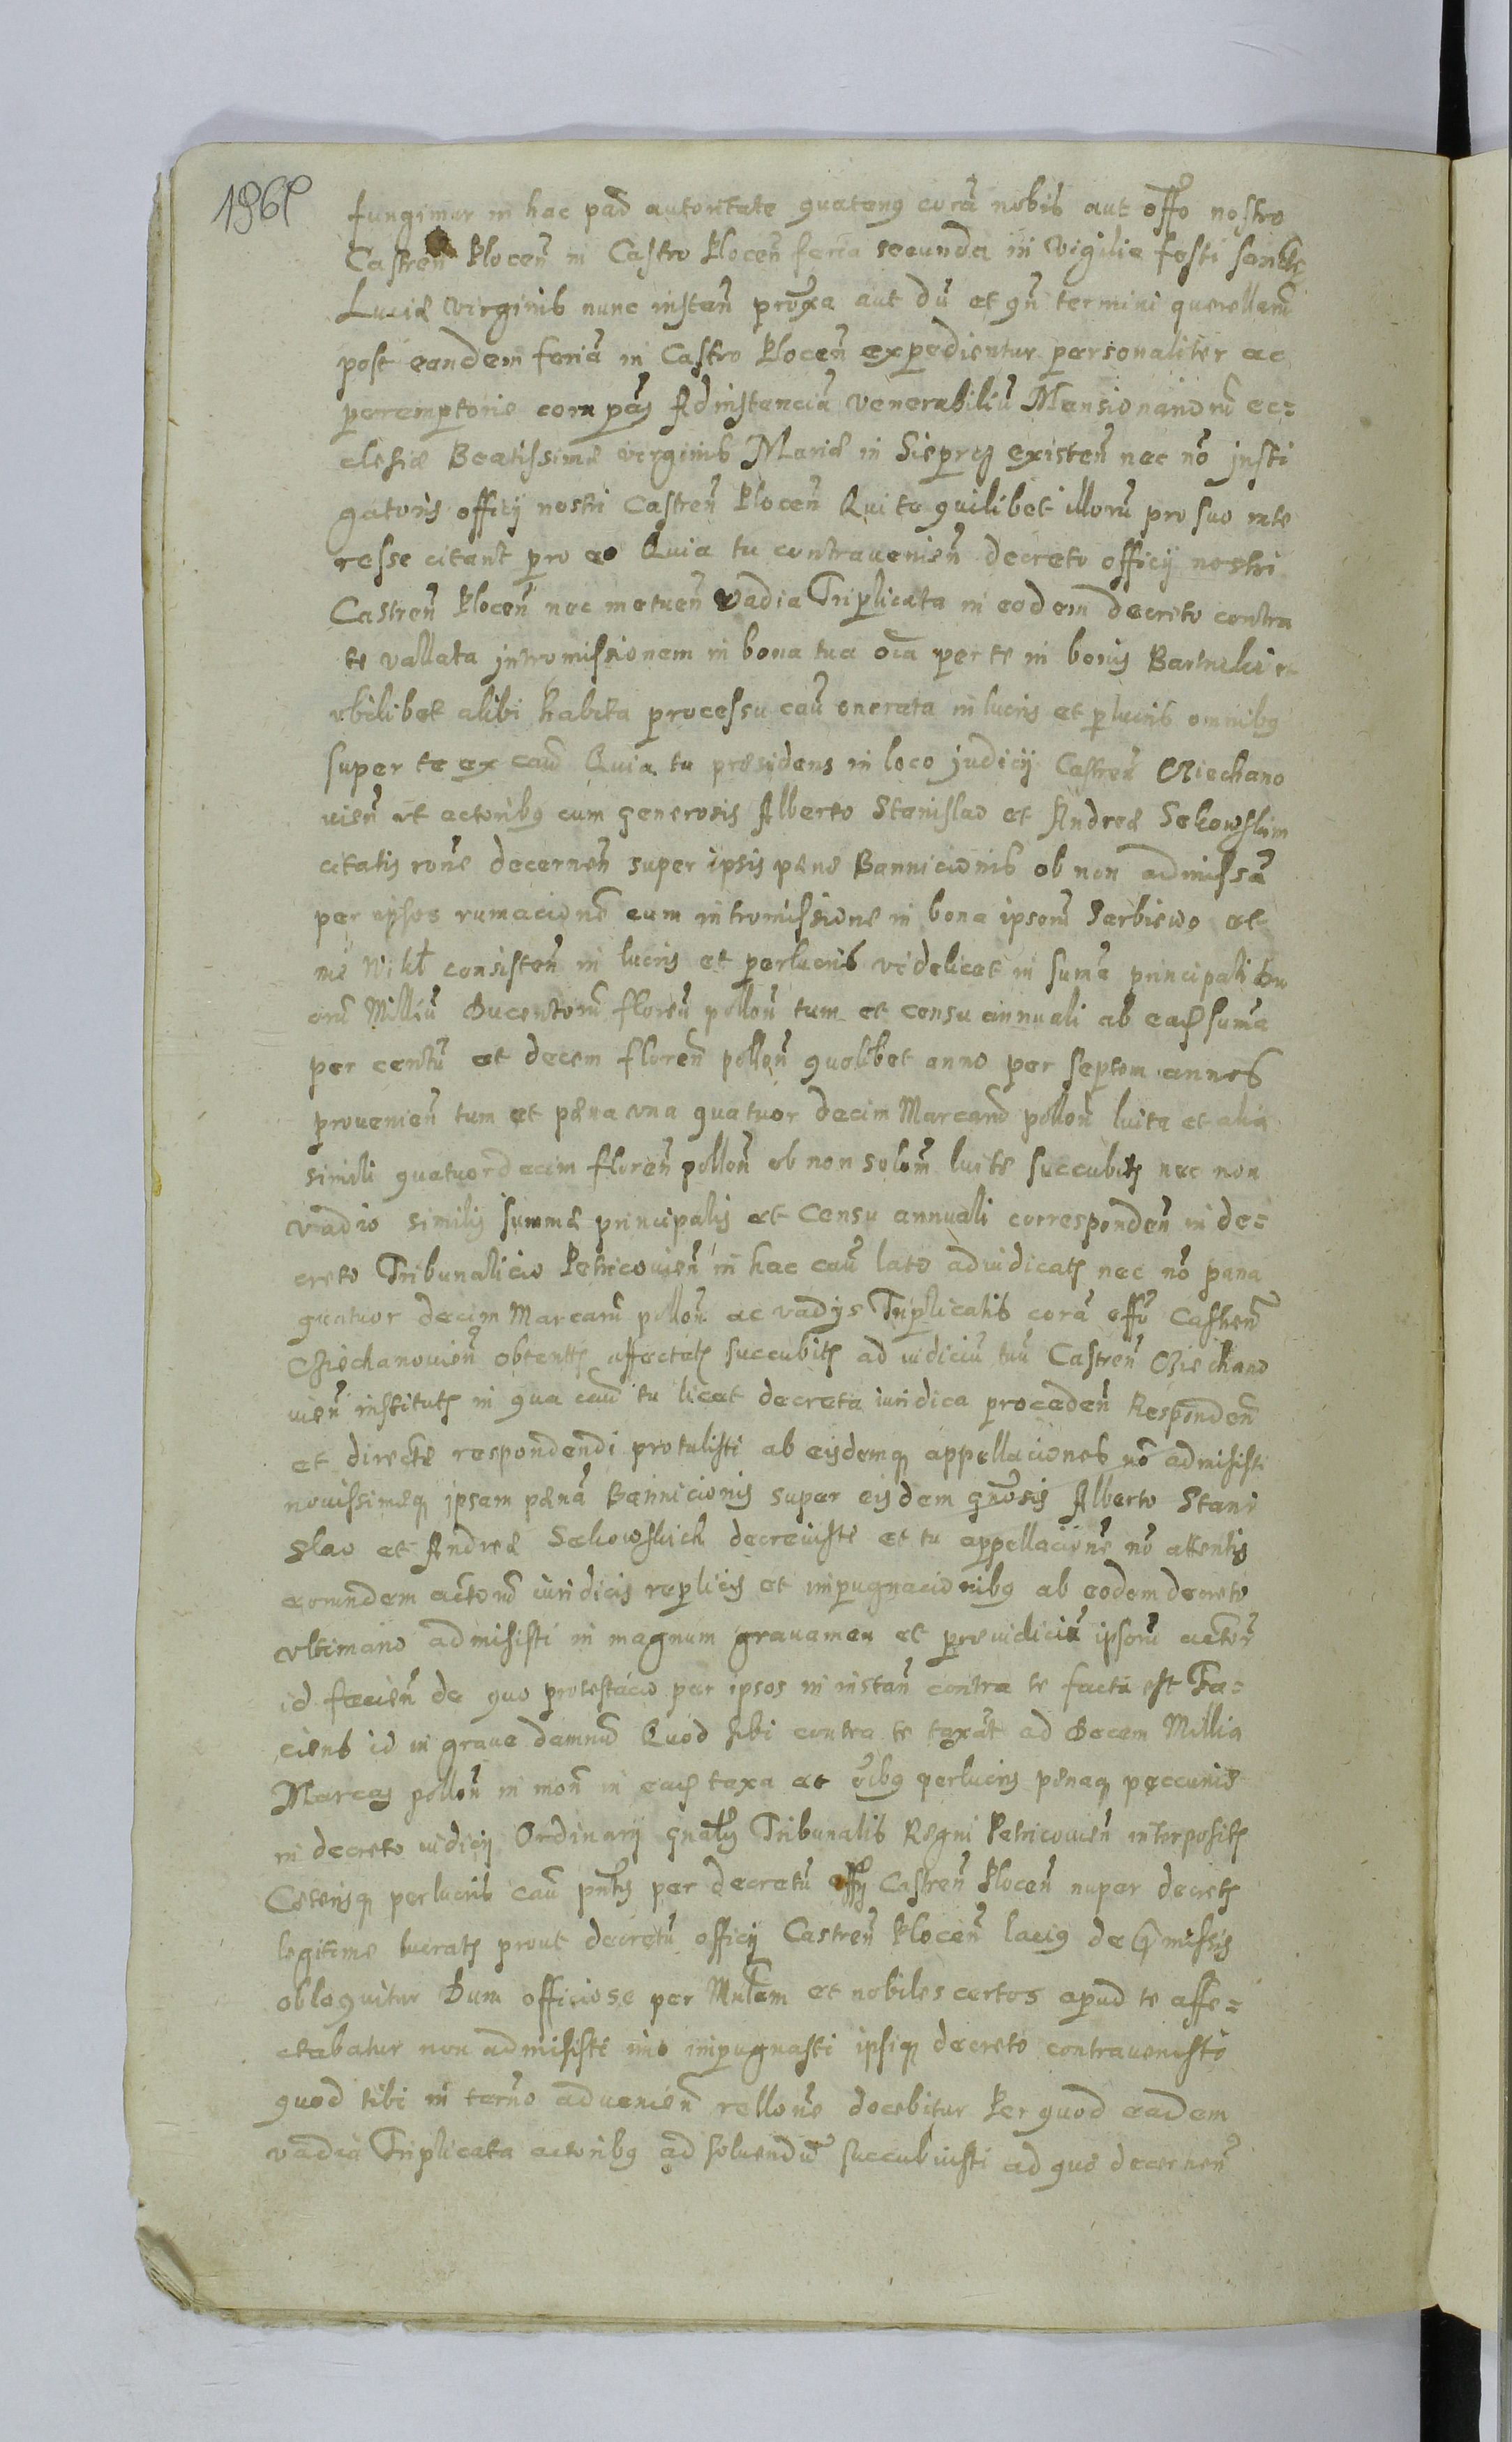 fungimur in hac pad autoritate quatenq corã nobis aut offo nostro
Castreñ Plocen̄ in Castro Plocen̄ feria secunda in vigilia festi sanctæ
Luciæ virginis nunc instañ proxa aut dũ et qñ termini querellarũ
post eandem feriã in Castro Plocen̄ expedientur personaliter ac
peremptorie comperas Ad instanciã venerabiliũ Mansionariorũ ec=
clesiæ Beatissimæ virginis Mariæ in Sieprcz existen̄ nec nõ insti
gatoris officij nostri Castren̄ Plocen̄ Qui te quilibet illorũ pro suo inte
resse citant pro eo Quia tu contravenien̄ decreto officij nostri
Castren̄ Plocen̄ nec metuen̄ vadia Triplicata in eodem decreto contra
te vallata intromissionem in bona tua oīa per te in bonis et
vbilibet alibi habita processu cau onerata in lucris et perlucris omnibq
super te ex cau Quia tu præsidens in loco judicij Castren̄ Ciechano
uien̄ vt actoribq cum generosis Alberto Stanislao et Andreæ
citatis rõne decernen̄ super ipsis pænæ Bannicionis ob non admissã
per ipsos rumacionẽ eum intromissione in bona ipsorũ Sarbiewo et
consisten̄ in lucris et perlucris videlicet in suma principali du
orũ Milliũ Ducentorũ floren̄ pollon̄ tum et censu annuali ab eadẽ suma
per centũ et decem floren̄ pollon̄ quolibet anno per septem annos
prouenien̄ tum et pæna vna quatuor decim Marcarũ pollon̄ luita et alia
simili quatuordecim floren̄ pollon̄ ob non solam luite succubitẽ nec non
vadio similis summæ principalis et Censu annuali corresponden̄ in de=
creto Tribunalicio Petricouien̄ in hac cau late adiudicatẽ nec nõ pæna
quatuor decim Marcarũ pollon̄ ac vadijs Triplicatis corã offo Castren̄
Ciechanouien̄ obtentẽ affectatẽ succubitẽ ad iudiciũ tuũ Castren̄ Ciechano
uien̄ institutẽ in qua cau tu licet decreta iuridica proceden̄ Responden̄
et directe respondendi protulisti ab eisdemq appellaciones nõ admisisti
nouissimeq ipsam pænã Bannicionis super eisdem gñosis Alberto Stani
slao et Andreæ decreuisti et tu appellacionẽ nõ attentis
eorundem actorũ iuridicis replicis et impugnacionibq ab eodem decreto
vltimario admisisti in magnum grauamen et præiudiciũ ipsorũ actorũ
id facien̄ de quo protestacio per ipsos in instañ contra te facta est Fa=
ciens id in graue damnũ Quod sibi contra te taxãt ad Decem Millia
Marcas pollon̄ in mon̄ in eadẽ taxa et õibq perlucris pænaq peccuniæ
in decreto iudicij Ordinarij gñalis Tribunalis Regni Petricouien̄ interpositẽ
Ceterisq perlucris cau pñtis per decretũ offij Castren̄ Plocen̄ nuper decretẽ
legitime lucratẽ prout decretũ officij Castren̄ Plocen̄ laciq de pmissis
obloquitur Dum officiose per Mñlem et nobiles certos apud te affe=
ctabatur non admisisti imo impugnasti ipsiq decreto contrauenisti
quod tibi in termõ aduenien̄ rellone docebitur Per quod eadem
vadia Triplicata actoribq ad soluendũ succubuisti ad quæ decernen̄